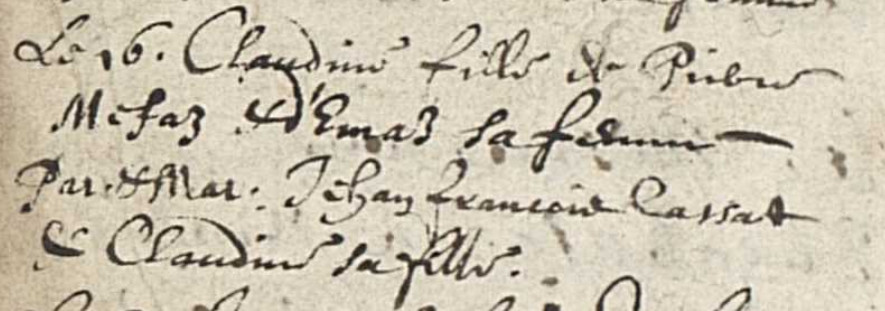 Le 16. Claudine fille de Pierre
Mesaz & d'Emaz sa femme
Par. & Mar. Jehan francois Cassat
& Claudine sa fille.